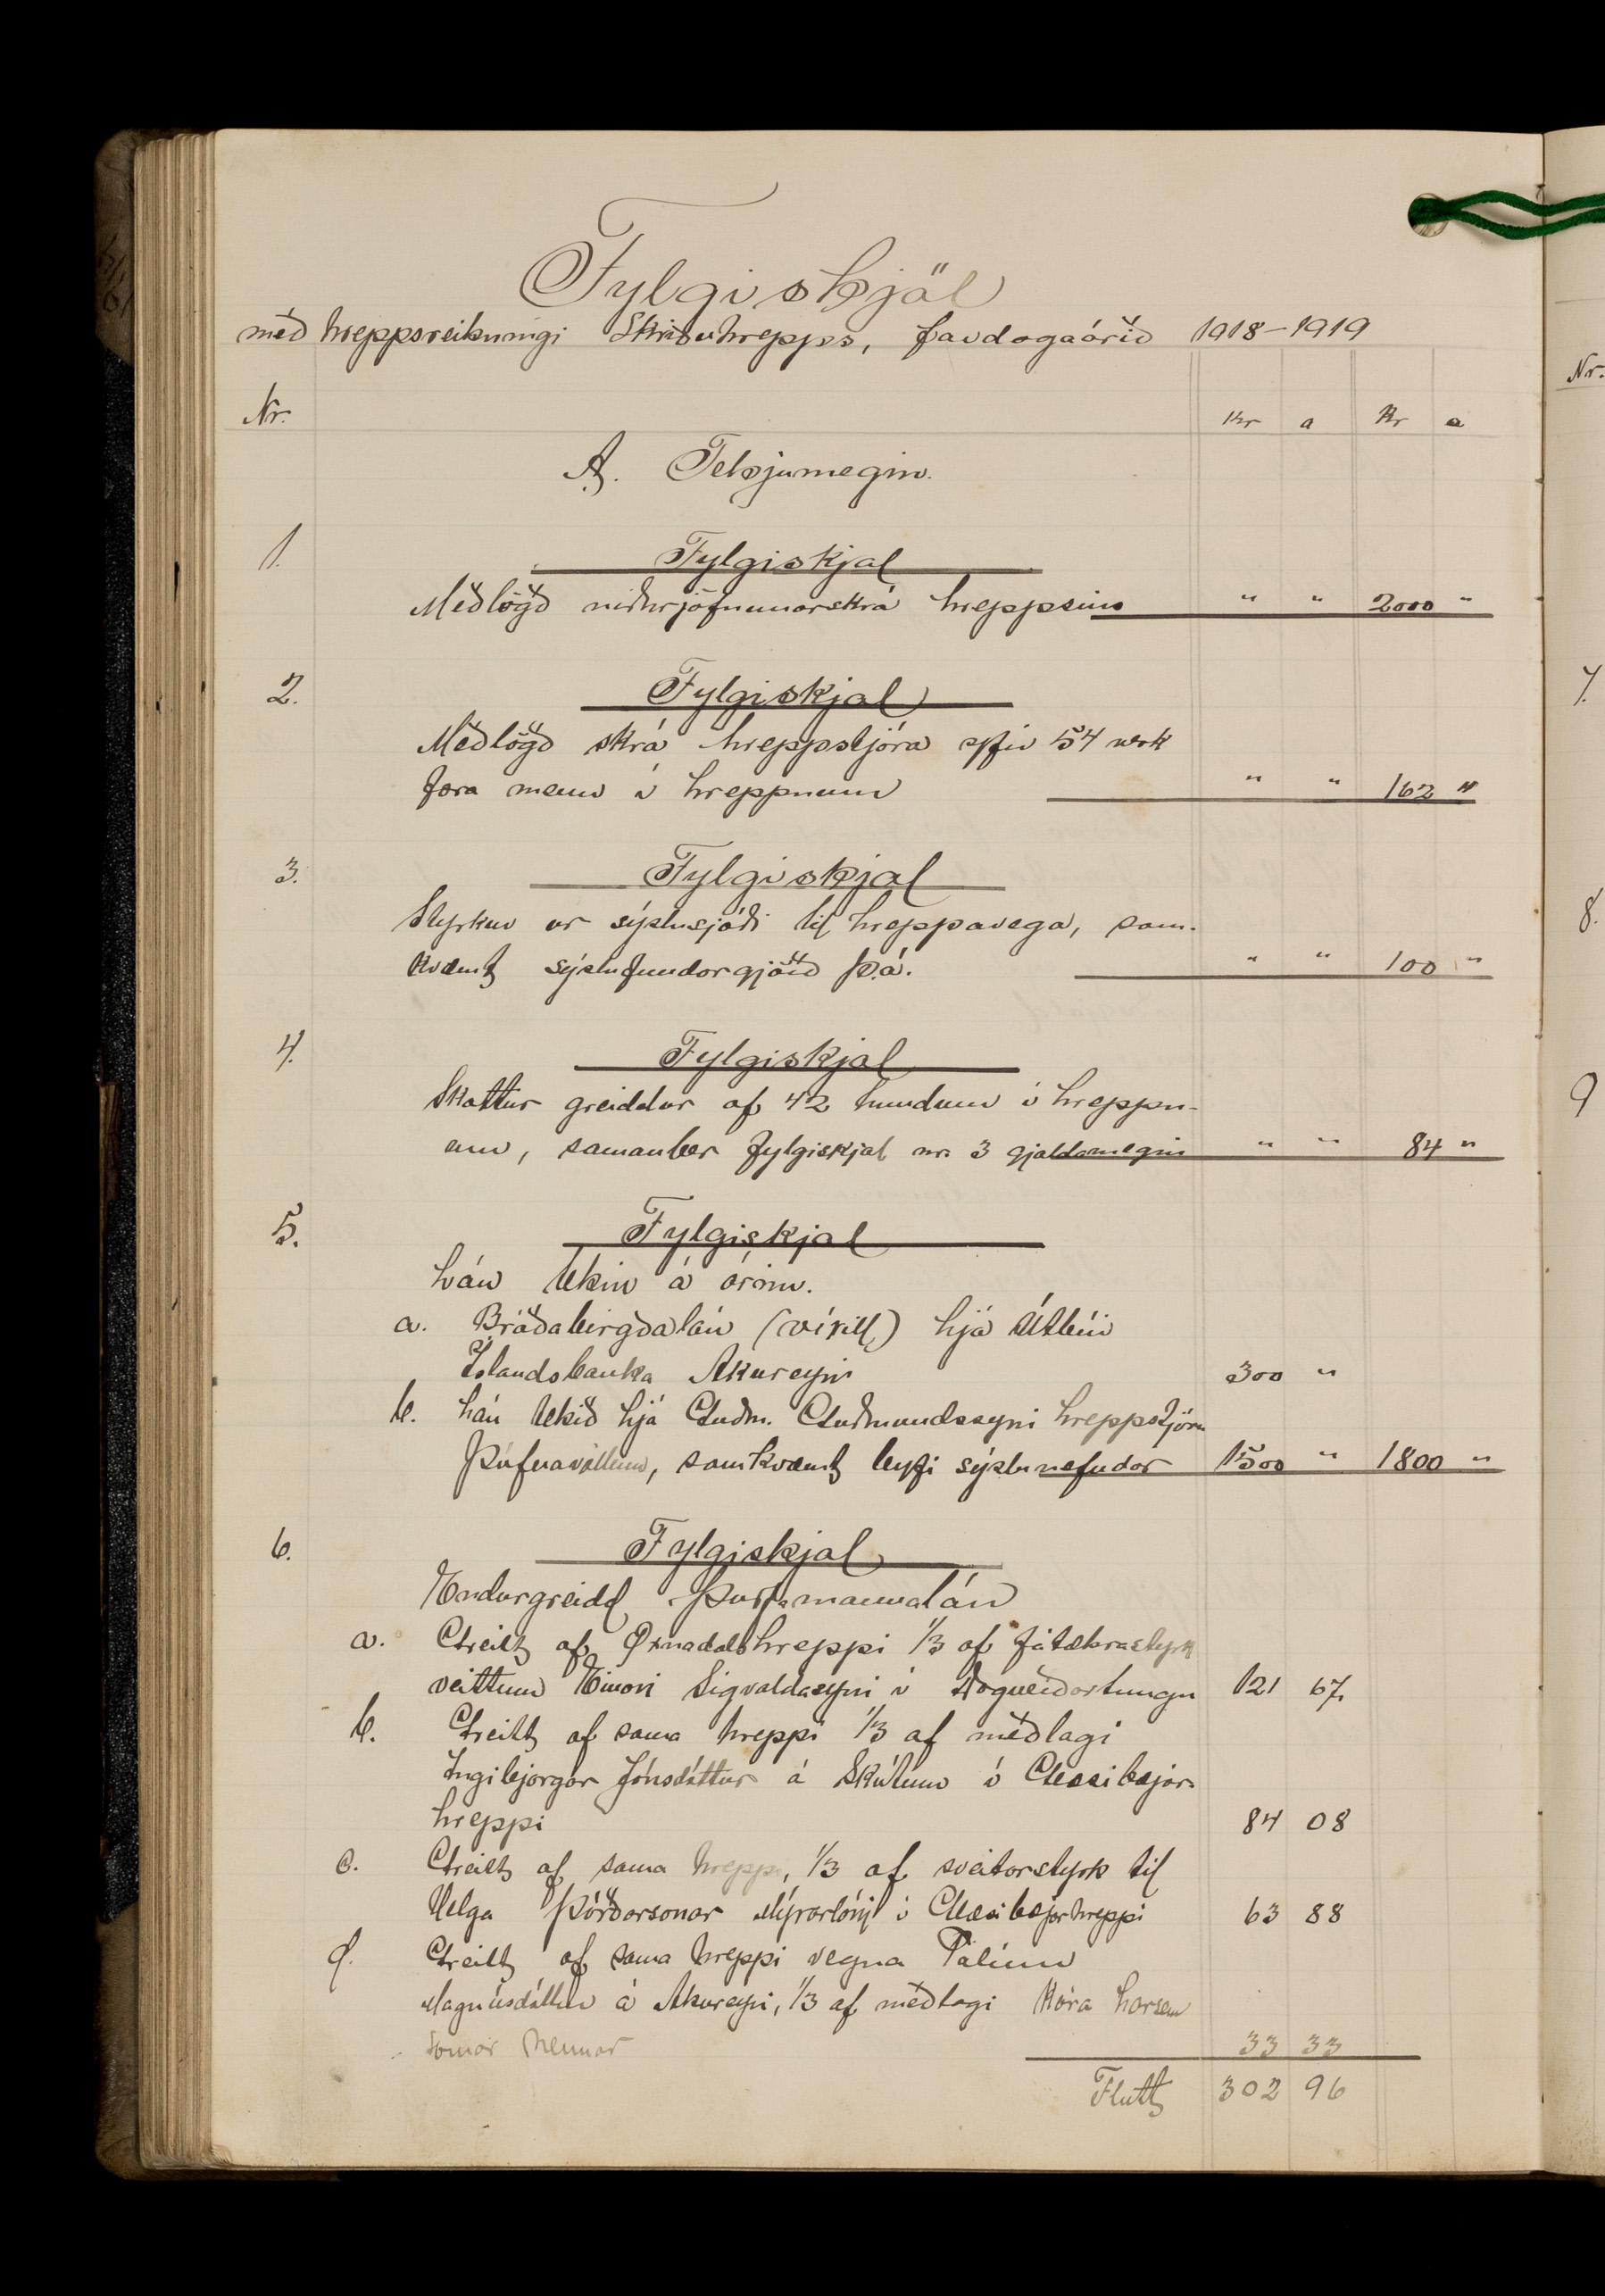 Fylgiskjöl
með hreppsreikningi Skriðuhrepps, fardagaárið 1918-1919
Nr. Kr a Kr a
A. Tekjumegin.
1. Fylgiskjal
Meðlögð niðurjöfnunarskrá hreppsins " " 2000 "
2. Fylgiskjal
Meðlögð skrá hreppstjóra yfir 54 verk
færa menn í hreppnum " " 162 "
3. Fylgiskjal
Styrkur úr sýslusjóði til hreppavega, sam-
kvæmt sýslufundargjörð þ.á. " " 100 "
4. Fylgiskjal
Skattur greiddur af 42 hundum í hreppn-
um, samanber fylgiskjal nr. 3 gjaldamegin " " 84 "
5. Fylgiskjal
Lán tekin á árinu.
a. Bráðabirgðalán (víxill) hjá Útbúi
Íslandsbanka Akureyri 300 "
b. Lán tekið hjá Guðm. Guðmundssyni hreppstjóra
Þúfnavöllum, samkvæmt leyfi sýslunefndar 1500 " 1800 "
6. Fylgiskjal
Endurgreidd þurfamannalán
a. Greitt af Öxnadalshreppi 1/3 af fátækrastyrk
veittum Einari Sigvaldasyni í 121 67
b. Greitt af sama hreppi 1/3 af meðlagi
Ingibjargar Jónsdóttur á Skútum í Glæsibæjar-
hreppi 84 08
c. Greitt af sama hreppi, 1/3 af sveitarstyrk til
Helga Þórðarsonar Mýrarlóni í Glæsibæjarhreppi 63 88
d. Greitt af sama hreppi vegna Pálínu
Magnúsdóttur á Akureyri, 1/3 af meðlagi Kára Larsen
sonar hennar 33 33
Flutt 302 96
Nr.
7.
8.
9